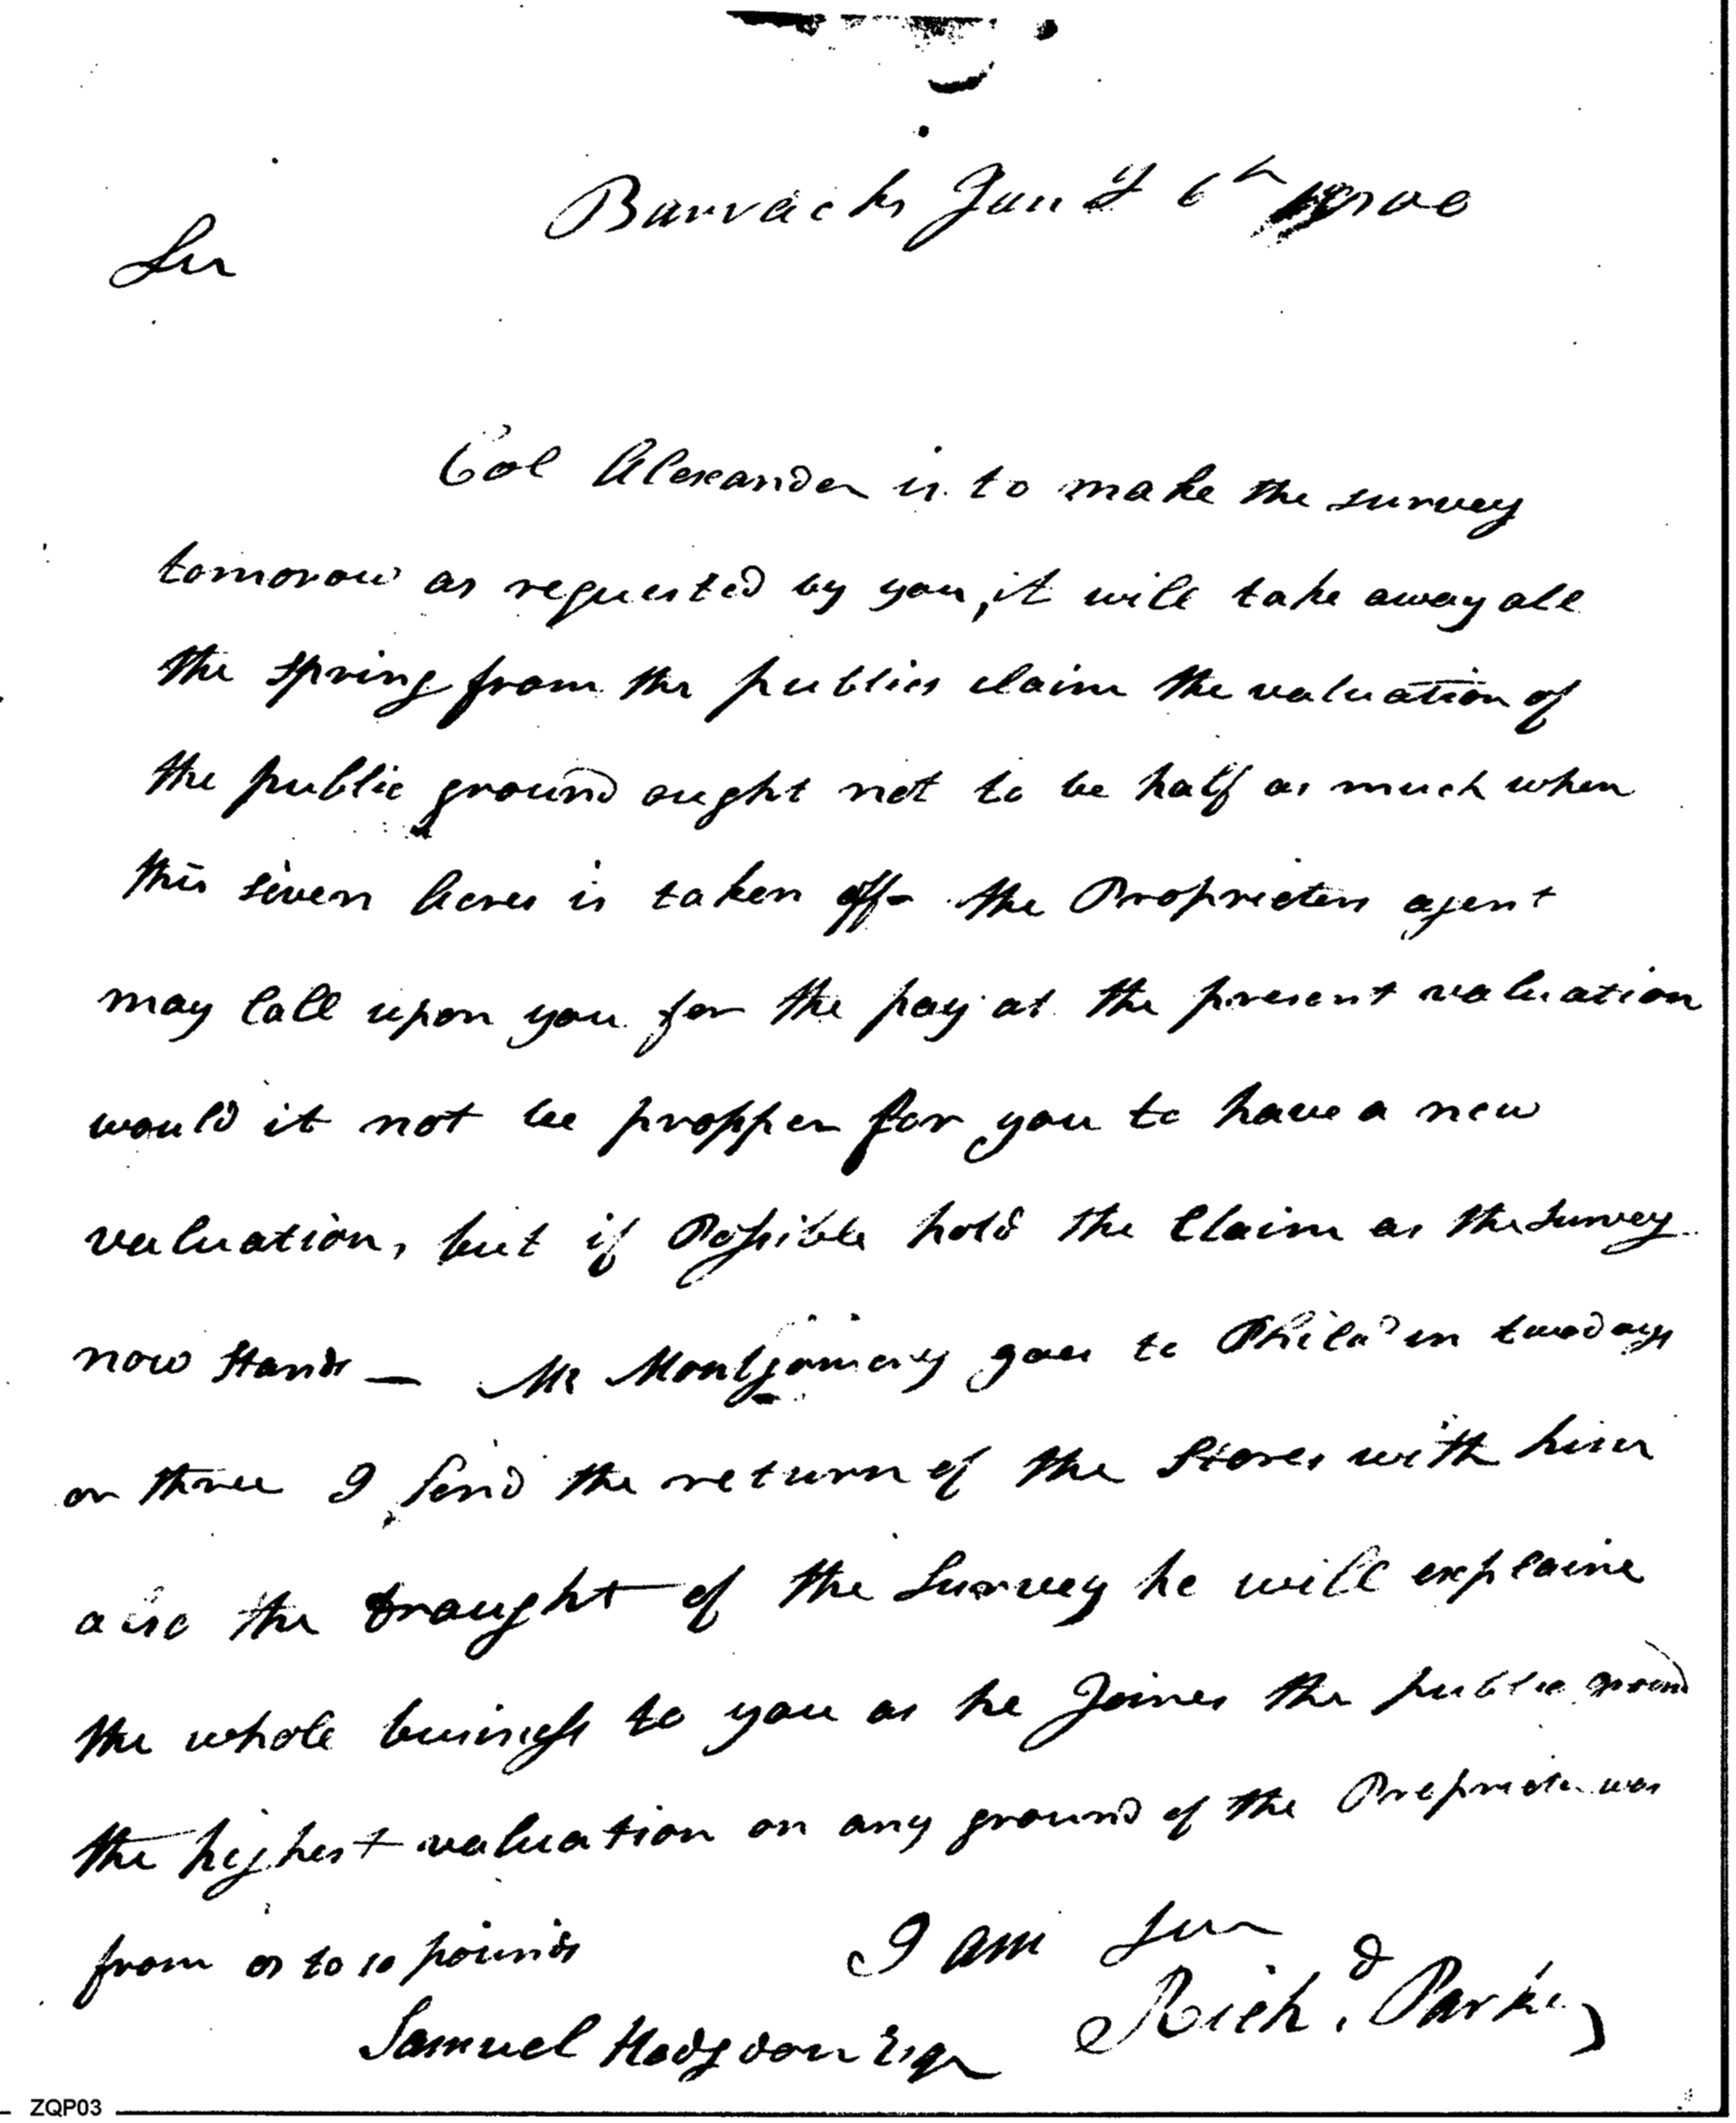 Barracks Jany 6th 1800
Sir
Col Alexander is to make the survey
tomorow as requested by you, it will take away all
the spring from the publics claim the valuation of
the public ground ought not to be half as much when
this seven Acres is taken off the Proprietors agent
may Call upon you for the pay at the present valuation
would it not be propper for you to have a new
valuation, but if Possible hold the Claim as the Survey
now Stands — Mr Montgomery goes to Philad in two days
or three I send the return of the Stores with him
also the draught of the Survey he will explaine
the whole business to you as he Joines the public ground
the highest valuation on any ground of the was
from to 10 pounds
I am Sir
Richd. Parker
Samuel Hodgdon Esqr
ZQP03